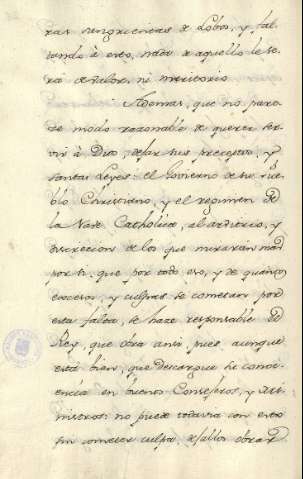 ras sangrientas de Lobos, y fal-
tando à esto, nada de aquello le se-
rá de valor, ni meritorio.
Ademas, que no pare-
ce modo razonable de querer ser-
vir à Dios, dejar sus preceptos, y
santas Leyes: el Govierno de su Pue-
blo Christiano, y el regimen de
la Nave Catholica, al arbitrio, y
discrecion de los que miraràn mas
por si, que por todo eso, y de quantos
excesos, y culpas se cometan por
esta falta, se hace responsable el
Rey, que obra ansi, pues aunque
està bien, que descargue su conci-
encia en buenos Consejeros, y Mi-
nistros: no puede todavia con esto
sin cometer culpa,